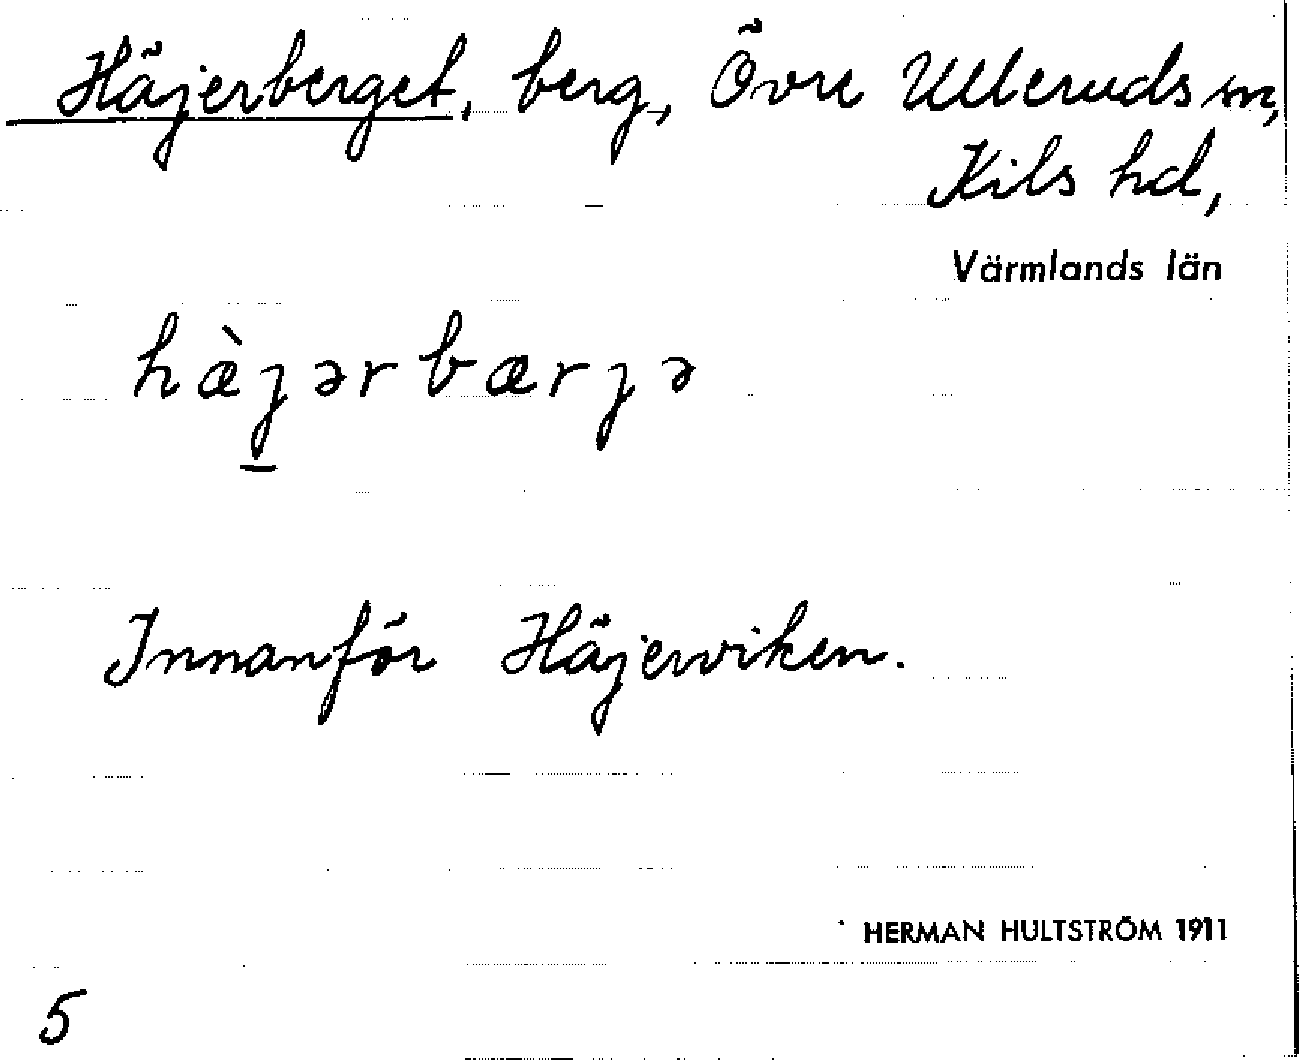 Häjerberget, berg, Övre Ulleruds sn,
Kils hd,
Värmlands län
hæ̀j̱ərbærjə
Innanför Häjerviken.
HERMAN HULTSTRÖM 1911
5